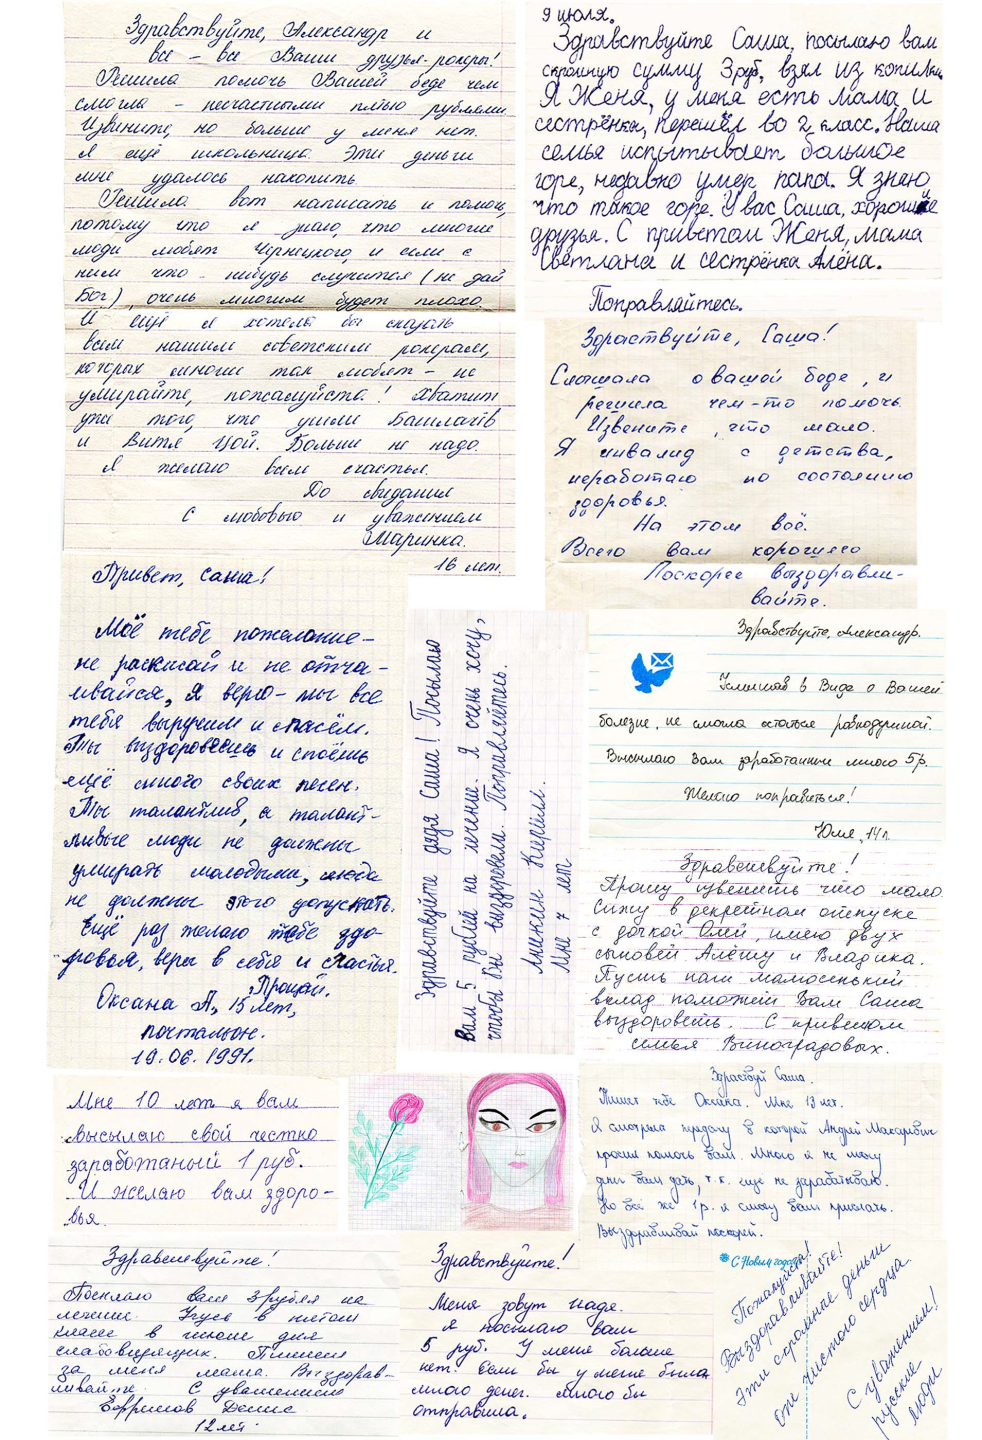 Здравствуйте, Александр и
все - все Ваши друзья-рокеры!
Решила помочь Вашей беде чем
смогла - несчастными пятью рублями.
Извините, но больше у меня нет.
Я ещё школьница. Эти деньги
мне удалось накопить.
Решила вот написать и помочь,
потому что я знаю, что многие
люди любят Чернецкого, и если с
ним что-нибудь случится (не дай
Бог), очень многим будет плохо.
И ещё я хотела бы сказать
всем нашим советским рокерам,
которых многие так любят - не
умирайте, пожалуйста! Хватит
уже того, что ушли Башлачёв
и Витя Цой. Больше не надо.
Я желаю всем счастья.
До свидания
С любовью и уважением
Маринка.
16 лет.
9 июля.
Здравствуйте Саша, посылаю вам
скромную сумму 3 руб, взял из копилки.
Я Женя, у меня есть мама и
сестрёнка, перешёл во 2 класс. Наша
семья испытывает большое
горе, недавно умер папа. Я знаю
что такое горе. У вас Саша, хорошие
друзья. С приветом Женя, мама
Светлана и сестрёнка Алёна.
Поправляйтесь.
Здраствуйте, Саша!
Слышала о вашой беде, и
решила чем-то помочь.
Извените, что мало.
Я инвалид с детства,
неработаю по состоянию
здоровья.
На этом всё.
Всего вам хорошего
Поскорее выздоравли-
вайте.
Привет, Саша!
Моё тебе пожелание-
не раскисай и не отча-
ивайся, я верю - мы все
тебя выручим и спасём.
Ты выздоровеешь и споёшь
ещё много своих песен.
Ты талантлив, а талант-
ливые люди не должны
умирать молодыми, люди
не должны этого допускать.
Ещё раз желаю тебе здо-
ровья, веры в себя и счастья.
Прощай.
Оксана А., 15 лет,
почтальон.
19.06.1991.
Здравствуйте дядя Саша! Посылаю
вам 5 рублей на лечение. Я очень хочу,
чтобы вы выздоревели. Поправляйтесь.
Аникин Кирилл.
Мне 7 лет
Здравствуйте, Александр.
Услышав в Виде о Вашей
болезне, не смогла остаться равнодушной.
Высылаю Вам заработанные мною 5р.
Желаю поправиться!
Юля, 14 л.
Здравствуйте!
Прошу извенить что мало.
Сижу в декретном отпуске
с дочкой Олей, имею двух
сыновей Алёшу и Владика.
Пусть наш мамосенький
вклад поможет Вам Саша
выздороветь. С приветом
семья Виноградовых.
Мне 10 лет я вам
высылаю свой честно
заработаный 1 руб.
И желаю вам здоро-
вья.
Здраствуй Саша.
Пишет тебе Оксана. Мне 13 лет.
Я смотрела передачу в которой Андрей Макаревич
просил помочь вам. Много я не могу
денег вам дать, т.к. еще не зарабатываю.
Но всё же 1р. я смогу вам прислать.
Выздоравливай поскорей.
Здравствуйте!
Посылаю вам 3 рубля на
лечение. Учусь в пятом
классе в школе для
слабовидящих. Пишет
за меня мама. Выздорав-
ливайте. С уважением
Ефримов Денис
12 лет.
Здравствуйте!
Меня зовут Надя.
Я посылаю вам
5 руб. У меня больше
нет. Если бы у меня было
много денег. много бы
отправила.
С Новым годом
Пожалуйста!
Выздоравливайте!
Эти скромные деньги
от чистого сердца.
С уважением!
русские
люди